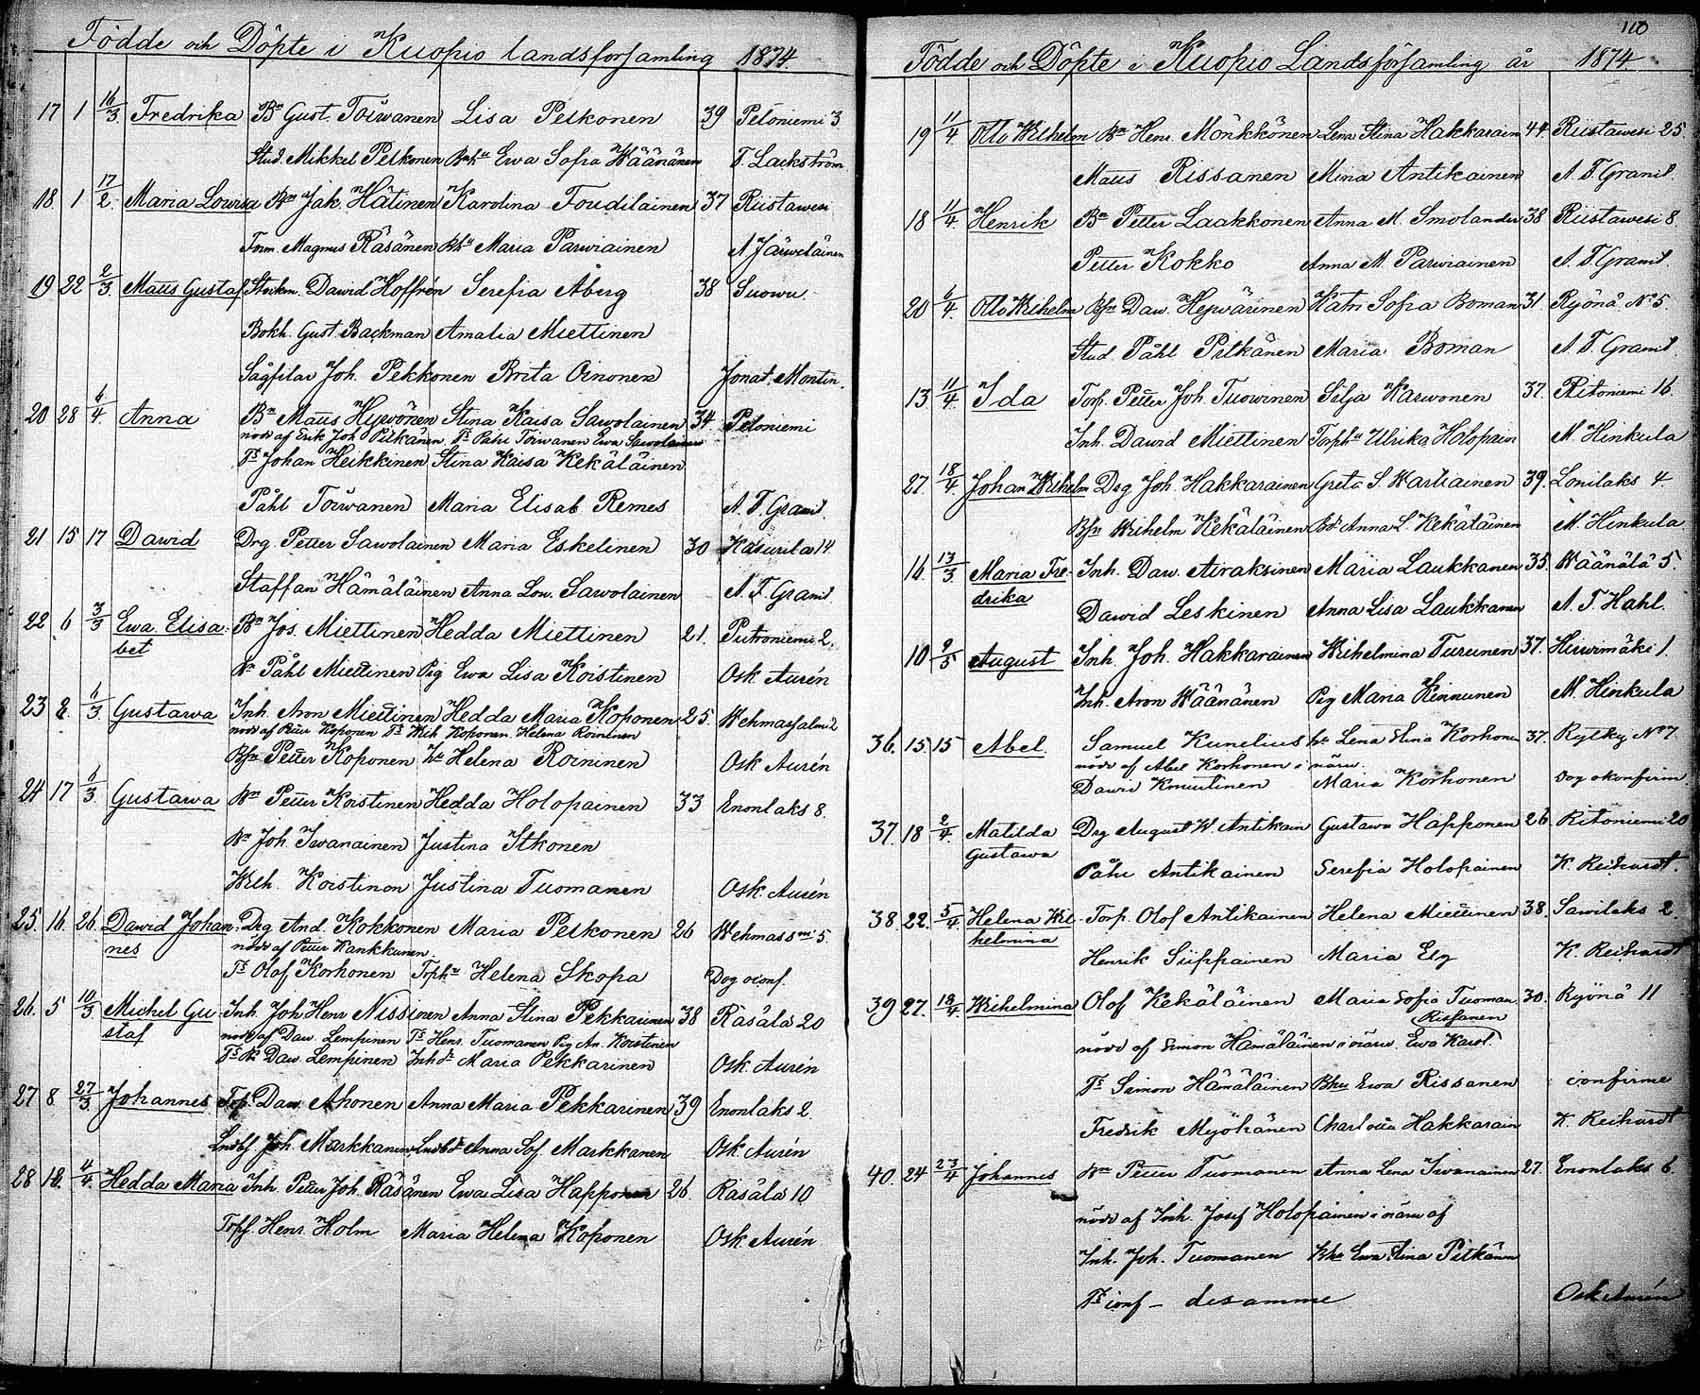 Födde och Döpte i Kuopio landsforsamling 1874.
17 1 16/3 Fredrika Bn Gust. Toiwanen Lisa Pelkonen 39 Petoniemi 3
Stud. Mikkel Pelkonen Ewa Sofia Wäänänen T. Lackström
18. 1 17/2. Maria Lowisa Bn Jak. Hätinen Karolina Foudilainen 37 Riistawesi
Magnus Räsänen Maria Parwiainen A Järweläinen
19 22 2/3. Matts Gustaf Dawid Hoffrén Serefia Åberg 38 Suowu.
Bokh. Gust. Backman Amalia Miettinen
Sågfilar Joh. Pekkonen Brita Oinonen Jonat. Montin.
20 28 6/4. Anna Bn Matts Hywönen Stina Kaisa Sawolainen 34 Petoniemi
nöd af Erik Joh Pitkänen, Ts Petri Toiwanen Ewa Sawolainen
Ts Johan Heikkinen Stina Kaisa Kekäläinen
Påhl Toiwanen Maria Elisab Remes A. F. Granit.
21 15 17 Dawid Drg. Petter Sawolainen Maria Eskelinen 30 Kasurila 14
Staffan Hämäläinen Anna Low. Sawolainen A. F. Granit
22 6 3/3 Ewa Elisa- Bn Jos. Miettinen Hedda Miettinen 21. Putroniemi 2.
bet
Påhl Miettinen Pig Ewa Lisa Koistinen Osk Aurén
23 8. 6/3. Gustawa Inh. Aron Miettinen Hedda Maria Koponen 25 Wehmassalmi 2
nöd af Petter Koponen Ts Wilh Koponen. Helena Roininen
Petter Koponen Helena Roininen Osk Aurén
24 17 6/3. Gustawa Petter Koistinen Hedda Holopainen 33 Enonlaks 8.
Joh. Iwanainen Justina Itkonen
Wilh. Koistinen Justina Tuomanen Osk. Aurén
25. 16. 26. Dawid Johan- Drg And. Kokkonen Maria Pelkonen 26 Wehmassmi 5.
nes nöd af Petter Kankkunen.
Ts Olof Korhonen Helena Skopa Dog oconf.
26. 5 10/3 Michel Gu- Inh. Joh Henr Nissinen Anna Stina Pekkarinen 38 Räsälä 20
staf nöd af Daw. Lempinen Ts Henr. Tuomanen Pig An. Koistinen
Daw. Lempinen Maria Pekkarinen Osk Aurén
27 8 27/3 Johannes Torp. Daw Ahonen Anna Maria Pekkarinen 39 Enonlaks 2.
Joh. Markkanen Anna Sof. Markkanen Osk Aurén
28 18. 4/4 Hedda Maria Inh Petter Joh. Räsänen Ewa Lisa Happonen 26 Räsälä 10
Henr. Holm Maria Helena Koponen Osk Aurén
110
Födde och Döpte i Kuopio Landsförsamling år 1874.
19 11/4 Otto Wilhelm Bn Henr. Mönkkönen Lena Stina Hakkarain 44. Riistawesi 25
Matts Rissanen Mina Antikainen A. F. Granit.
18 11/4. Henrik Bn Petter Laakkonen Anna M. Smolander 38 Riistawesi 8.
Petter Kokko Anna M. Parwiainen A. F. Granit
20 6/4. Otto Wilhelm Daw. Hepärinen Katri Sofia Boman 31. Ryönä No 5.
Stud. Påhl Pitkänen Maria Boman A. F. Granit.
13 11/4. Ida Torp. Petter Joh. Tuowinen Silja Karwonen 37. Ritoniemi 16.
Inh. Dawid Miettinen Ulrika Holopain M. Hinkula
27. 18/4. Johan Wilhelm Drg Joh. Hakkarainen Greta S. Kartiainen 39. Lonilaks 4.
Wilhelm Kekäläinen Anna L. Kekäläinen M. Hinkula
16. 13/3 Maria Fre- Inh. Daw. Airaksinen Maria Laukkanen 35. Wäänälä 5.
drika Dawid Leskinen Anna Lisa Laukkanen A. T. Hahl.
10 9/5 August Inh. Joh. Hakkarainen Wilhelmina Turunen 37. Hirwimäki 1.
Inh. Aron Wäänänen Pig Maria Kinnunen M. Hinkula
36. 15. 15 Abel. Samuel Kunelius Lena Stina Korhonen 37. Rytky No 7
nöd af Abel Korhonen i närw.
Dawid Knuutinen Maria Korhonen Dog okonfirm
37. 18 2/4. Matilda Drg August W. Antikain Gustawa Happonen 26. Ritoniemi 20
Gustawa
Påhl Antikainen Serefia Holopainen K. Reihardt.
38. 22. 5/4. Helena Wil- Torp. Olof Antikainen Helena Miettinen 38. Sawilaks 2.
helmina
Henrik Siippainen Maria Elg K. Reihardt
39 27. 19/4. Wilhelmina Olof Kekäläinen Maria Sofia Tuoman. 30. Ryönä 11
Rissanen
nöd af Simon Hämäläinen i närw. Ewa Karol.
Ts Simon Hämäläinen Ewa Rissanen confirme
Fredrik Myöhänen Charlotta Hakkarain K. Reihardt
40. 24 23/4 Johannes Petter Tuomanen Anna Lena Iwanainen 27. Enonlaks 6.
nöd af Inh. Josef Holopainen i närw af
Inh. Joh. Tuomanen Ewa Stina Pitkänen
Ts conf - desamme Osk Aurén